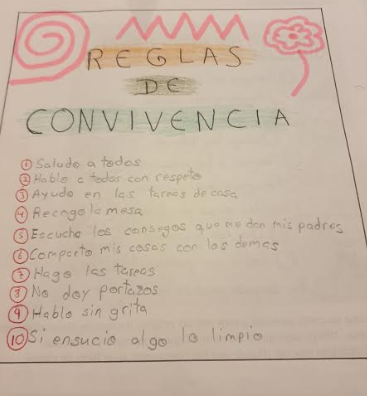 REGLAS
DE
CONVIVENCIA
1 Saludo a todos
2 Hablo a todos con respeto
3 Ayudo en las tareas de casa
4 Recogo la mesa
5 Escucho los consegos que me dan mis padres
6 Comparto mis cosas con los demas
7 Hago las tareas
8 No doy portazos
9 Hablo sin grita
10 Si ensucio algo lo limpio